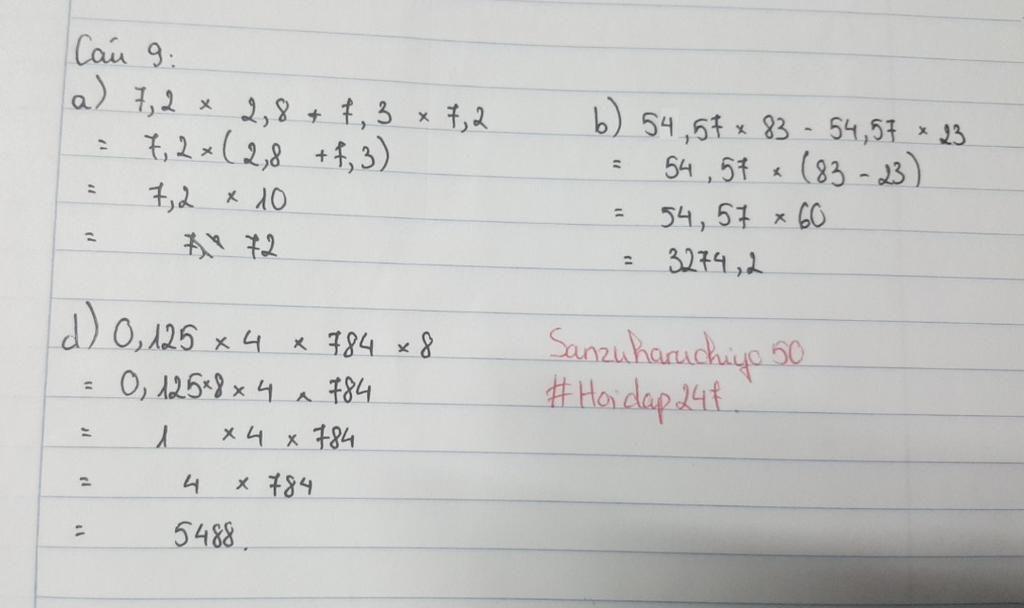 Câu 9:
a) 7,2 × 2,8 + 7,3 × 7,2
= 7,2 × (2,8 + 7,3)
= 7,2 × 10
= 72
b) 54,57 × 83 - 54,57 × 23
= 54,57 × (83 - 23)
= 54,57 × 60
= 3274,2
d) 0,125 × 4 × 784 × 8
= 0,125 × 8 × 4 × 784
= 1 × 4 × 784
= 4 × 784
= 5488.
Sanzuharuchiyo 50
#Hoidap247.